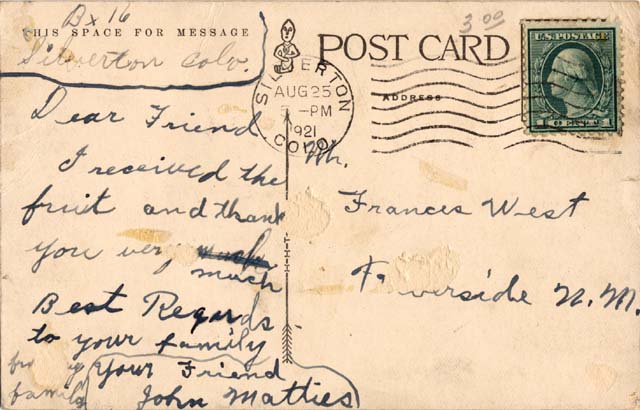 Bx 16
THIS SPACE FOR MESSAGE
Silverton Colo.
Dear Friend
I received the
fruit and thank
you very
much
Best Regards
to your family
family
Your Friend
John Matties
3.00
POST CARD
ADDRESS
SILVERTON
AUG 25
-PM
1921
COLO.
U.S. POSTAGE
1 CENT 1
Mr.
Frances West
N.M.